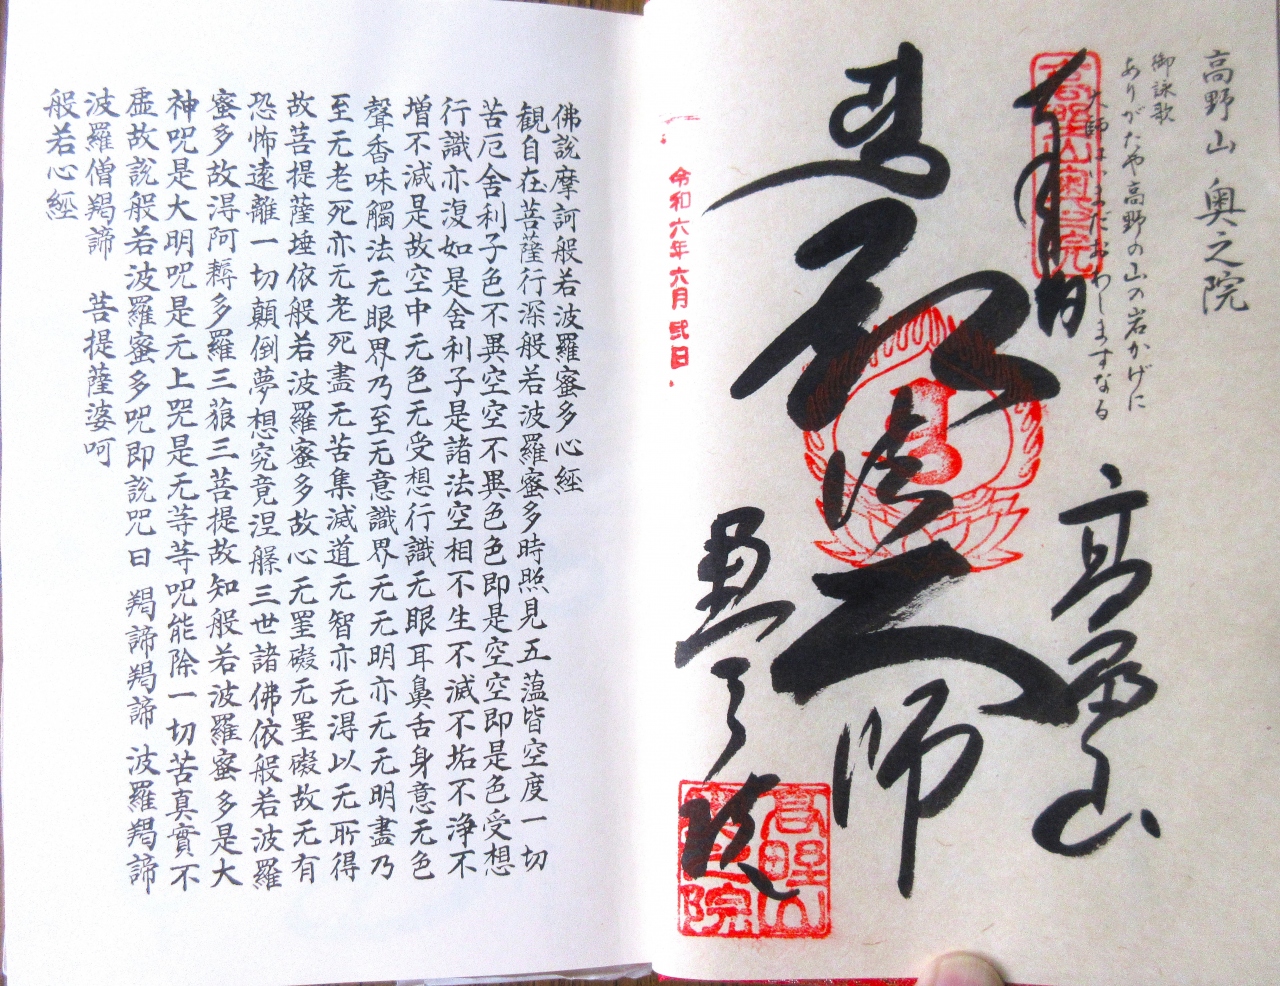 高野山 奥之院
御詠歌
ありがたや高野の山の岩かげに
大師はいまだおわしますなる
奉拝
高野山
弘法大師
奥之院
高野山奥之院
高野山
奥之院
令和六年六月弐日
佛説摩訶般若波羅蜜多心経
観自在菩薩行深般若波羅蜜多時照見五蕰皆空度一切
苦厄舍利子色不異空空不異色色即是空空即是色受想
行識亦復如是舍利子是諸法空相不生不滅不垢不浄不
増不減是故空中无色无受想行識无眼耳鼻舌身意无色
聲香味觸法无眼界乃至无意識界无无明亦无无明盡乃
至无老死亦无老死盡无苦集滅道无智亦无淂以无所得
故菩提薩埵依般若波羅蜜多故心无罣礙无罣礙故无有
恐怖遠離一切顛倒夢想究竟涅槃三世諸佛依般若波羅
蜜多故淂阿耨多羅三藐三菩提故知般若波羅蜜多是大
神呪是大明呪是无上呪是无等等呪能除一切苦真實不
虚故説般若波羅蜜多呪即説呪曰 羯諦羯諦 波羅羯諦
波羅僧羯諦 菩提薩婆呵
般若心経